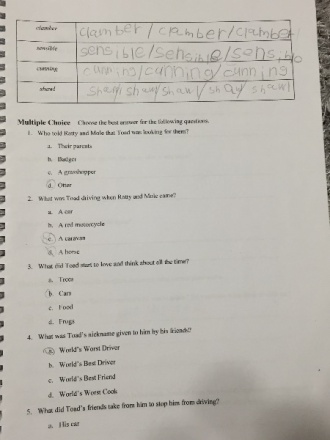 clamber clamber / clamber / clamber
sensible sensible / sensible / sensible
cunning cunning / cunning / cunning
shawl shawl shawl / shawl / shawl / shawl
Multiple Choice Choose the best answer for the following questions.
1. Who told Ratty and Mole that Toad was looking for them?
a. Their parents
b. Badger
c. A grasshopper
d. Otter
2. What was Toad driving when Ratty and Mole came?
a. A car
b. A red motorcycle
c. A caravan
d. A horse
3. What did Toad start to love and think about all the time?
a. Trees
b. Cars
c. Food
d. Frogs
4. What was Toad's nickname given to him by his friends?
a. World's Worst Driver
b. World's Best Driver
c. World's Best Friend
d. World's Worst Cook
5. What did Toad's friends take from him to stop him from driving?
a. His car